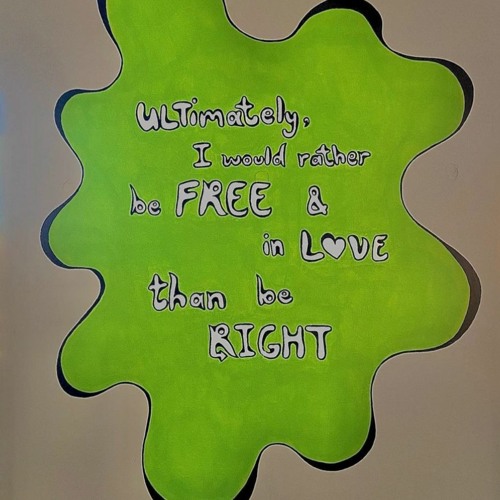 ULTimately,
I would rather
be FREE &
in L♥VE
than be
RIGHT